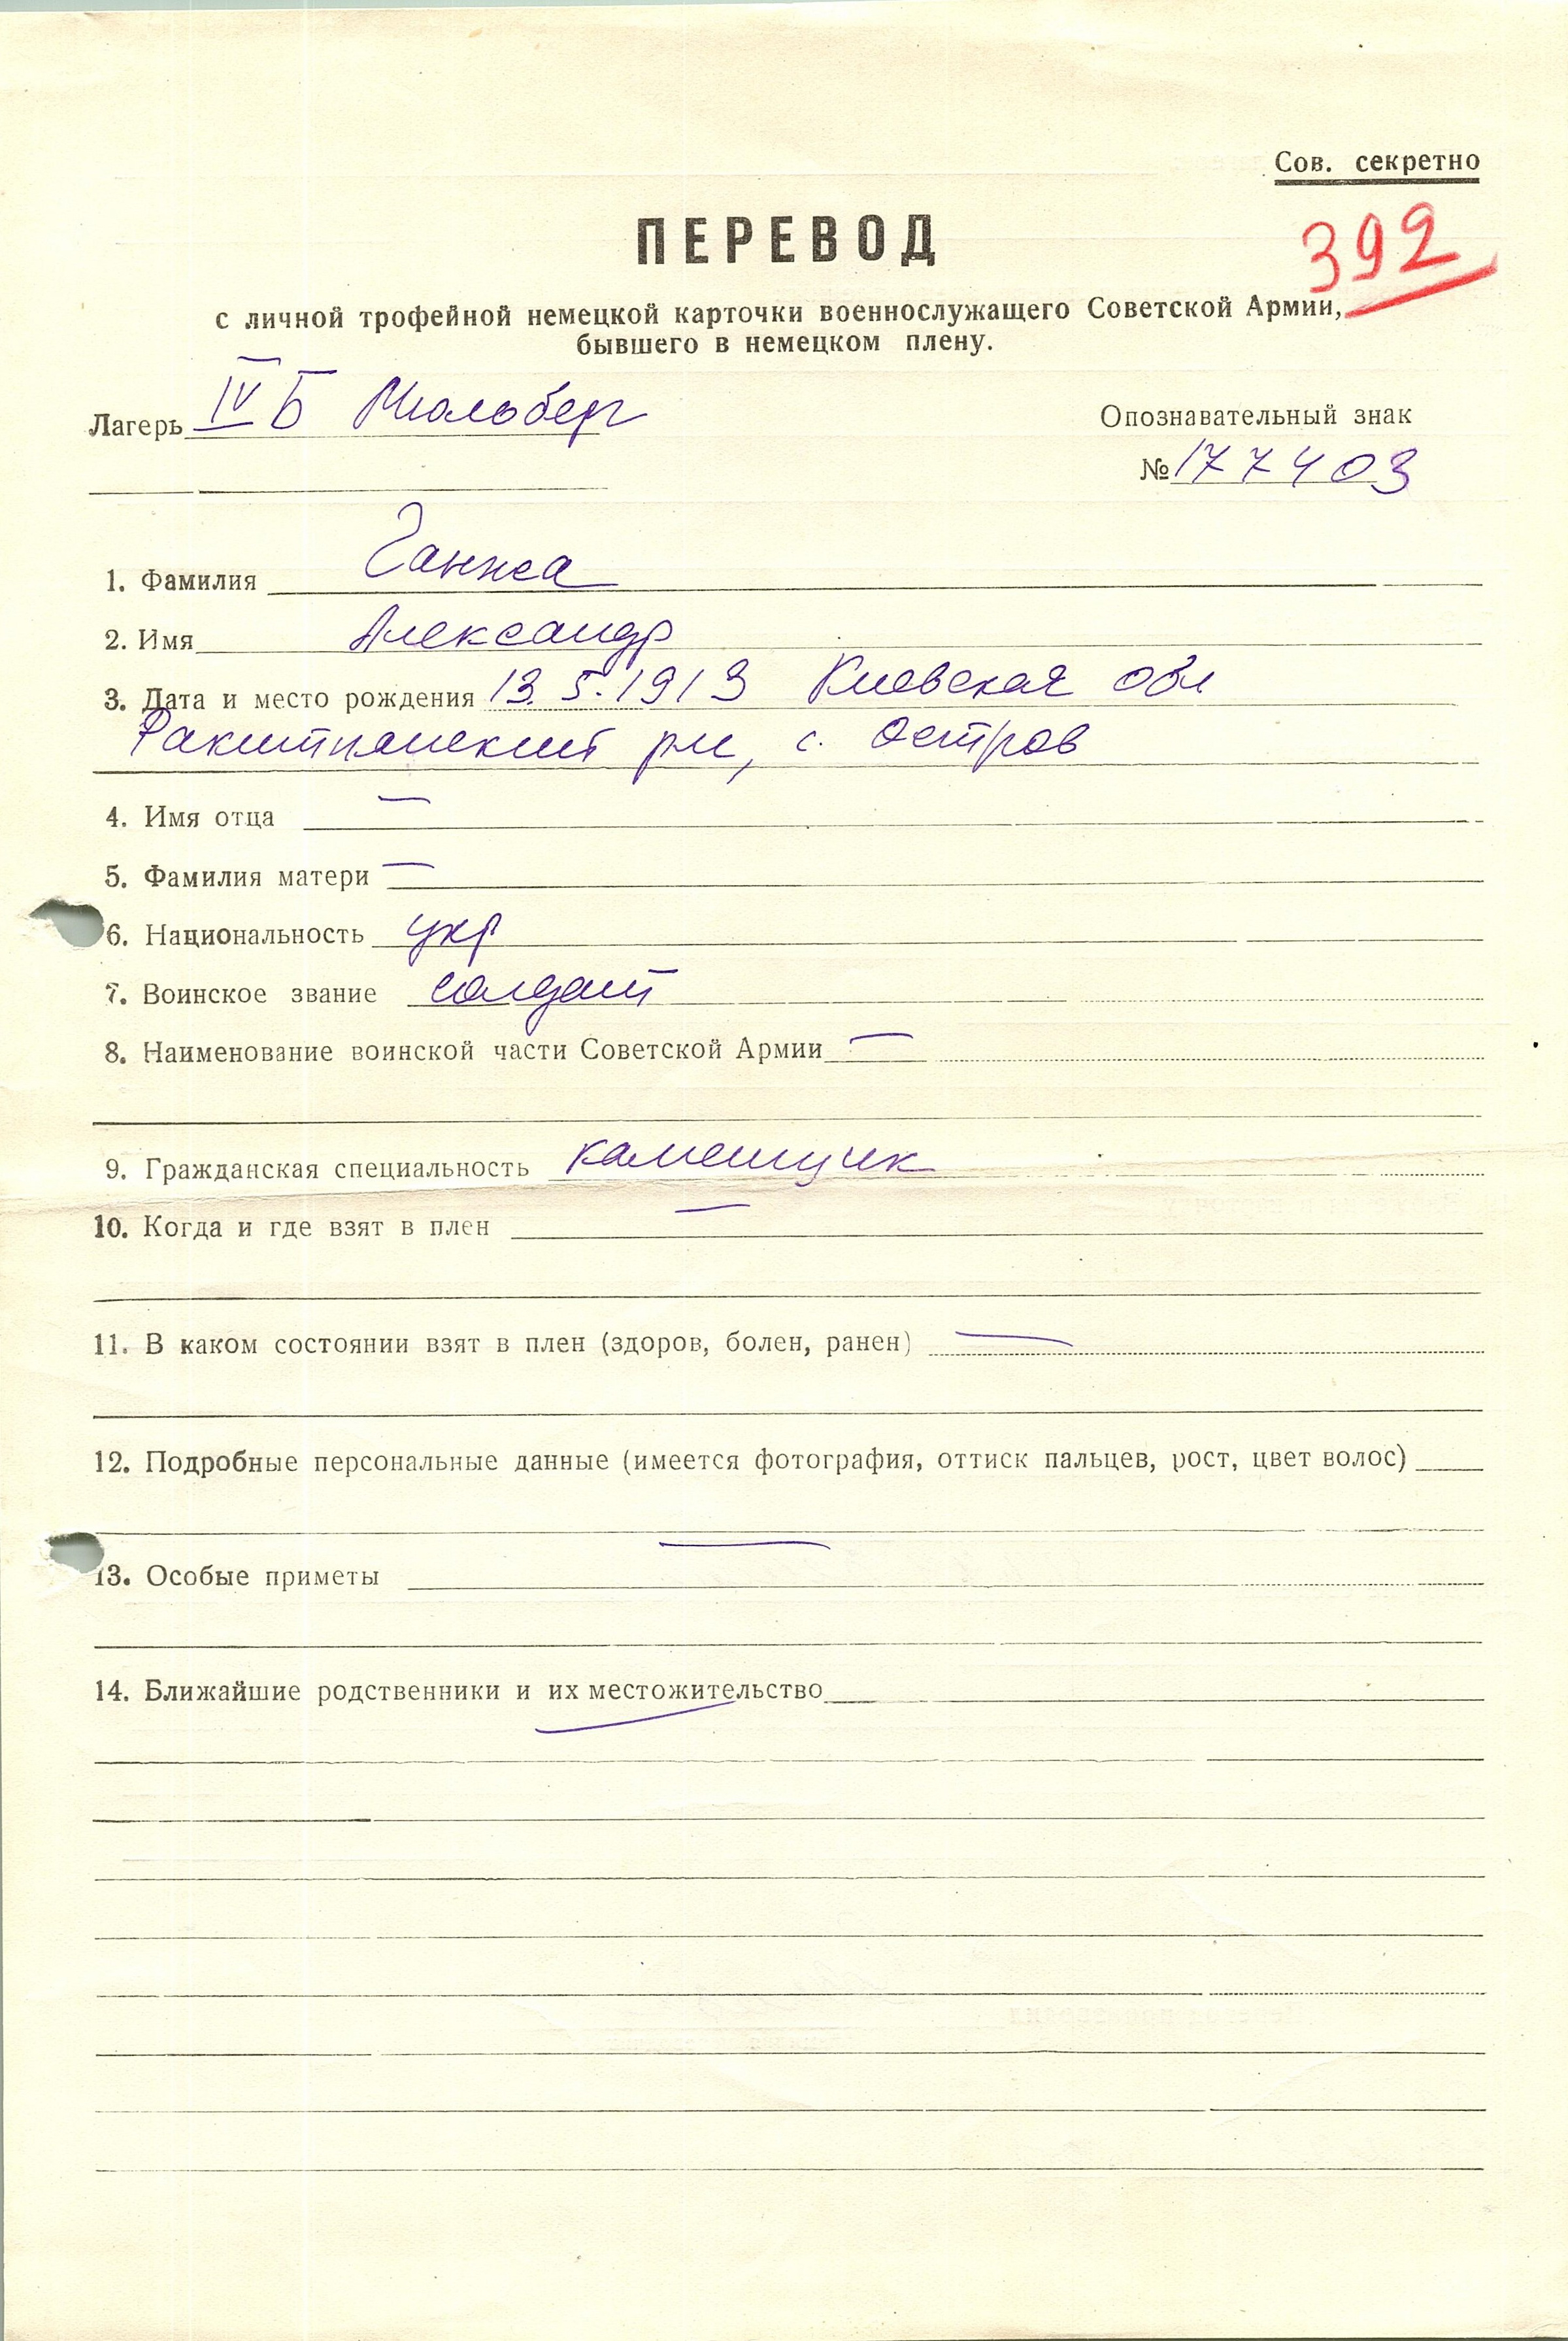 Сов. секретно
ПЕРЕВОД
392
с личной трофейной немецкой карточки военнослужащего Советской Армии,
бывшего в немецком плену.
Лагерь IV Б Мюльберг
Опознавательный знак
№ 177403
1. Фамилия Ганжа
2. Имя Александр
3. Дата и место рождения 13.5.1913 Киевская обл
Ракитнанский рн, с. Остров
4. Имя отца —
5. Фамилия матери —
6. Национальность укр
7. Воинское звание солдат
8. Наименование воинской части Советской Армии —
9. Гражданская специальность каменщик
10. Когда и где взят в плен —
11. В каком состоянии взят в плен (здоров, болен, ранен) —
12. Подробные персональные данные (имеется фотография, оттиск пальцев, рост, цвет волос)
—
13. Особые приметы
14. Ближайшие родственники и их местожительство
—